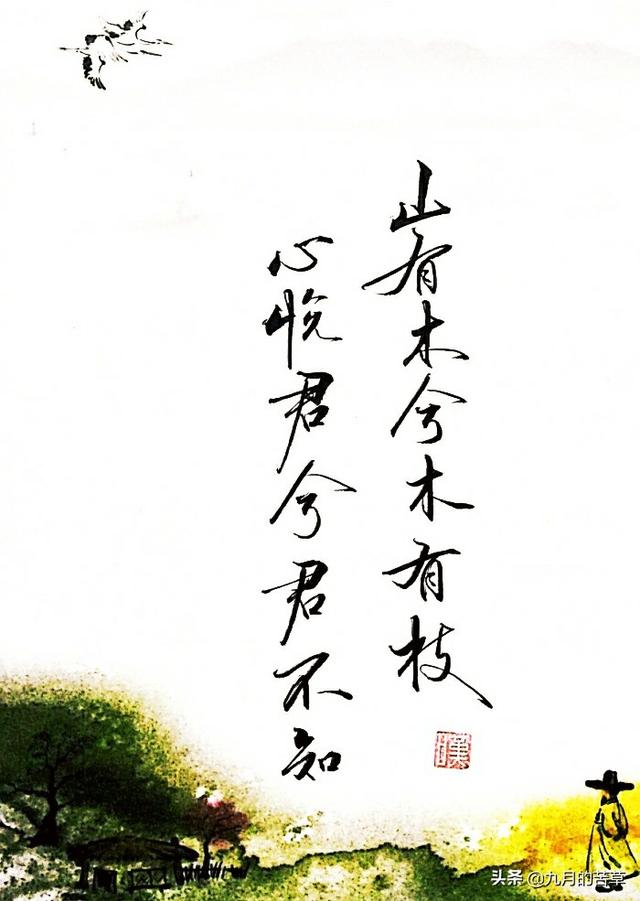 山有木兮木有枝
心悦君兮君不知
漢
头条 @九月的苦草